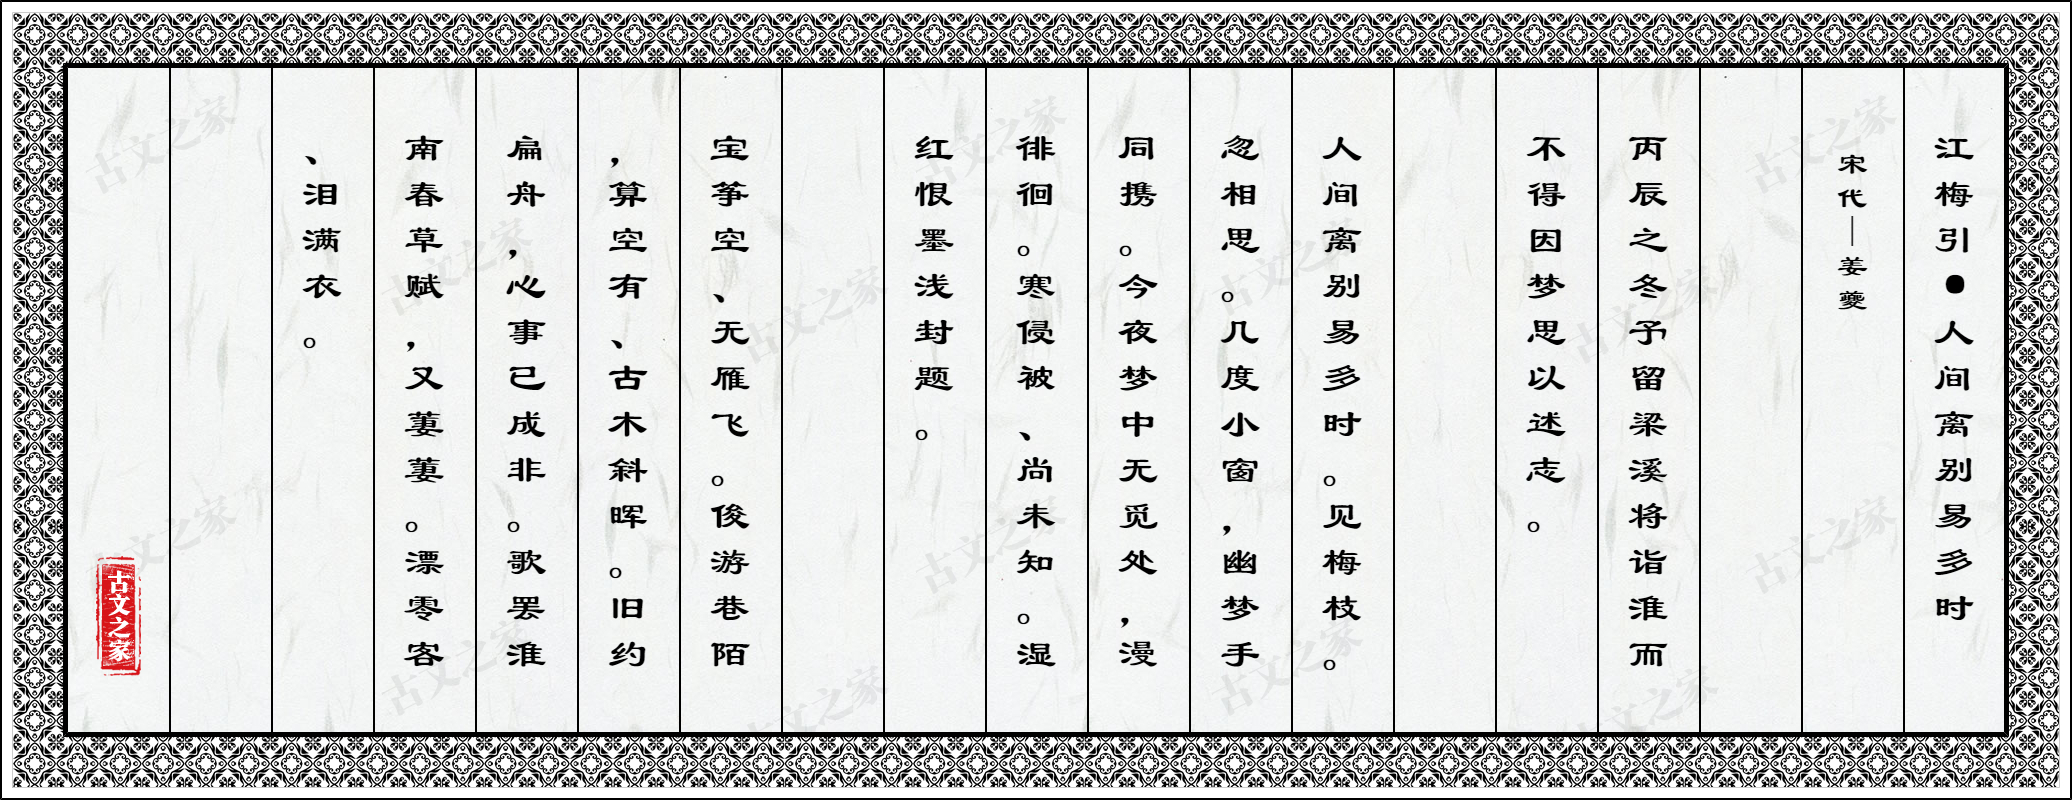 江梅引●人间离别易多时
宋代—姜夔
丙辰之冬予留梁溪将诣淮而
不得因梦思以述志。
人间离别易多时。见梅枝。
忽相思。几度小窗，幽梦手
同携。今夜梦中无觅处，漫
徘徊。寒侵被、尚未知。湿
红恨墨浅封题。
宝筝空、无雁飞。俊游巷陌
，算空有、古木斜晖。旧约
扁舟，心事已成非。歌罢淮
南春草赋，又萋萋。漂零客
、泪满衣。
古文之家